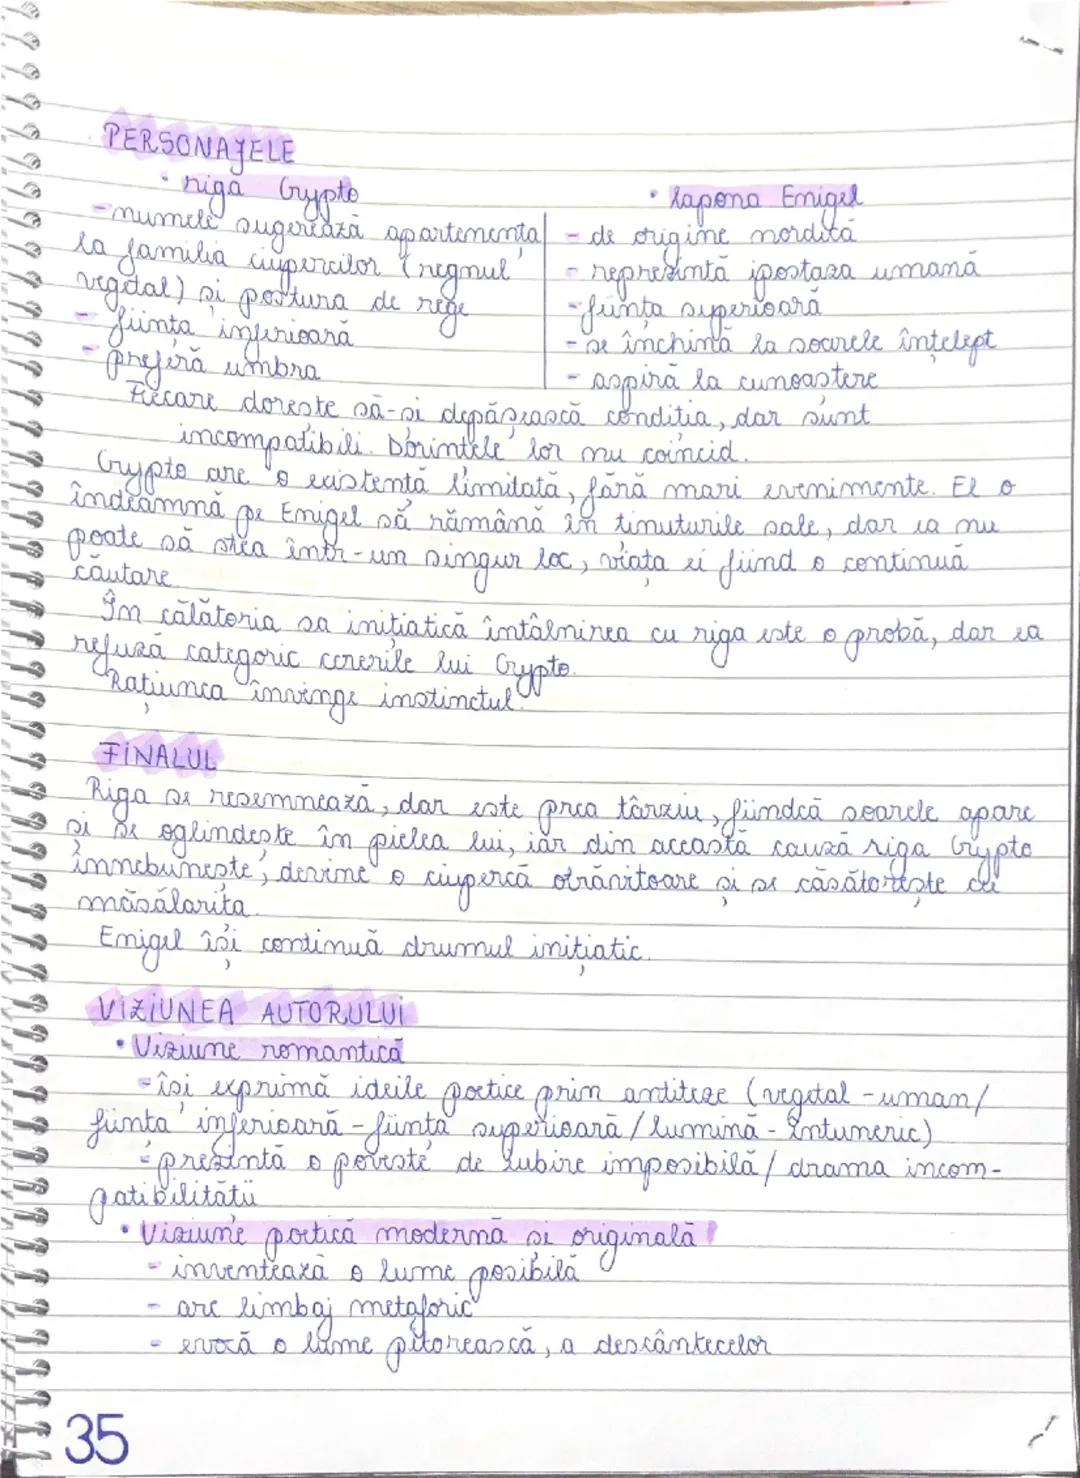 PERSONAJELE
• riga Crypto
- numele sugerează apartenența
la familia ciupercilor (regnul
vegetal) și postura de rege
- ființa inferioară
- preferă umbra
• lapona Enigel
- de origine nordică
- reprezintă ipostaza umană
- ființa superioară
- se închină la soarele înțelept
- aspiră la cunoaștere
Fiecare dorește să-și depășească condiția, dar sunt
incompatibili. Dorințele lor nu coincid.
Crypto are o existență limitată, fără mari evenimente. El o
îndeamnă pe Enigel să rămână în ținuturile sale, dar ea nu
poate să stea într-un singur loc, viața ei fiind o continuă
căutare.
În călătoria sa inițiatică întâlnirea cu riga este o probă, dar ea
refuză categoric cererile lui Crypto.
Rațiunea învinge instinctul.
FINALUL
Riga se resemnează, dar este prea târziu, fiindcă soarele apare
și se oglindește în pielea lui, iar din această cauză riga Crypto
înnebunește, devine o ciupercă otrăvitoare și se căsătorește cu
măsălarița.
Enigel își continuă drumul inițiatic.
VIZIUNEA AUTORULUI
• Viziune romantică
- își exprimă ideile poetice prin antiteze (vegetal - uman/
ființa inferioară - ființa superioară / lumină - întuneric)
- prezintă o poveste de iubire imposibilă / drama incom-
patibilității
• Viziune poetică modernă și originală
- inventează o lume posibilă
- are limbaj metaforic
- evocă o lume pitorească, a descântecelor
35